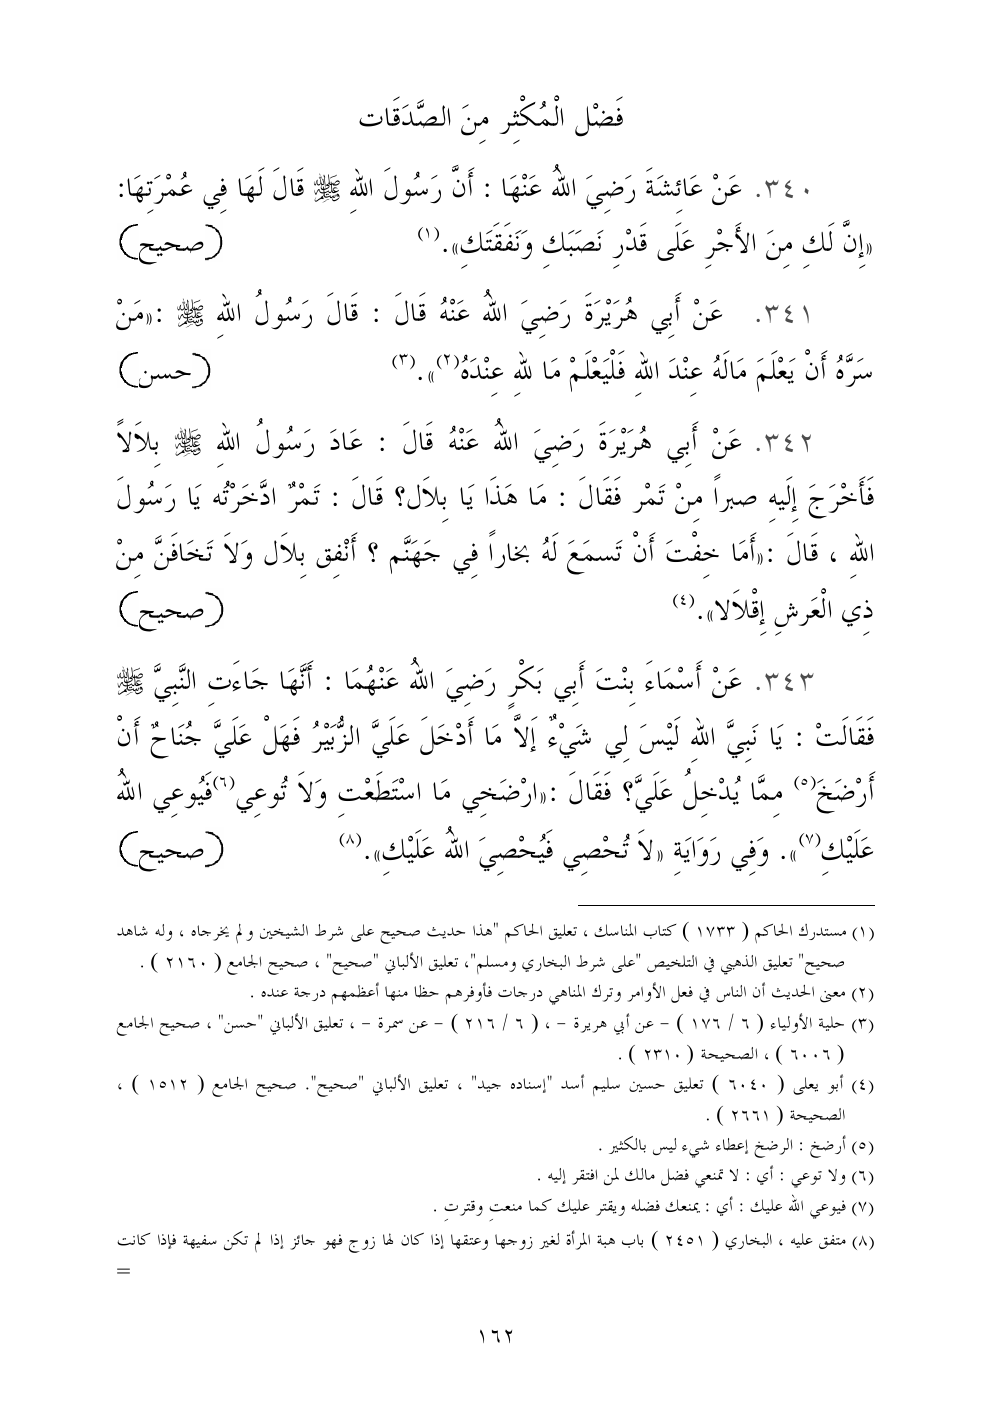 فَضْل الْمُكْثِر مِنَ الصَّدَقَات
٣٤٠. عَنْ عَائِشَةَ رَضِيَ اللهُ عَنْهَا : أَنَّ رَسُولَ اللهِ ﷺ قَالَ لَهَا فِي عُمْرَتِهَا:
«إِنَّ لَكِ مِنَ الأَجْرِ عَلَى قَدْرِ نَصَبَكِ وَنَفَقَتَكِ».(١) (صحيح)
٣٤١. عَنْ أَبِي هُرَيْرَةَ رَضِيَ اللهُ عَنْهُ قَالَ : قَالَ رَسُولُ اللهِ ﷺ :«مَنْ
سَرَّهُ أَنْ يَعْلَمَ مَالَهُ عِنْدَ اللهِ فَلْيَعْلَمْ مَا للهِ عِنْدَهُ(٢)».(٣) (حسن)
٣٤٢. عَنْ أَبِي هُرَيْرَةَ رَضِيَ اللهُ عَنْهُ قَالَ : عَادَ رَسُولُ اللهِ ﷺ بِلاَلاً
فَأَخْرَجَ إِلَيهِ صبراً مِنْ تَمْر فَقَالَ : مَا هَذَا يَا بِلاَل؟ قَالَ : تَمْرٌ ادَّخَرْتُه يَا رَسُولَ
اللهِ ، قَالَ :«أَمَا خِفْتَ أَنْ تَسمَعَ لَهُ بخاراً فِي جَهَنَّم ؟ أَنْفِق بِلاَل وَلاَ تَخَافَنَّ مِنْ
ذِي الْعَرشِ إِقْلاَلا».(٤) (صحيح)
٣٤٣. عَنْ أَسْمَاءَ بِنْتَ أَبِي بَكْرٍ رَضِيَ اللهُ عَنْهُمَا : أَنَّهَا جَاءَتِ النَّبِيَّ ﷺ
فَقَالَتْ : يَا نَبِيَّ اللهِ لَيْسَ لِي شَيْءٌ إَلاَّ مَا أَدْخَلَ عَلَيَّ الزُّبَيْرُ فَهَلْ عَلَيَّ جُنَاحٌ أَنْ
أَرْضَخَ(٥) مِمَّا يُدْخِلُ عَلَيَّ؟ فَقَالَ :«ارْضَخِي مَا اسْتَطَعْتِ وَلاَ تُوعِي(٦)فَيُوعِي اللهُ
عَلَيْكِ(٧)». وَفِي رَوَايَةِ «لاَ تُحْصِي فَيُحْصِيَ اللهُ عَلَيْكِ».(٨) (صحيح)
(١) مستدرك الحاكم ( ١٧٣٣ ) كتاب المناسك ، تعليق الحاكم "هذا حديث صحيح على شرط الشيخين ولم يخرجاه ، وله شاهد
صحيح" تعليق الذهبي في التلخيص "على شرط البخاري ومسلم"، تعليق الألباني "صحيح" ، صحيح الجامع ( ٢١٦٠ ) .
(٢) معنى الحديث أن الناس في فعل الأوامر وترك المناهي درجات فأوفرهم حظا منها أعظمهم درجة عنده .
(٣) حلية الأولياء ( ٦ / ١٧٦ ) – عن أبي هريرة – ، ( ٦ / ٢١٦ ) – عن سمرة – ، تعليق الألباني "حسن" ، صحيح الجامع
( ٦٠٠٦ ) ، الصحيحة ( ٢٣١٠ ) .
(٤) أبو يعلى ( ٦٠٤٠ ) تعليق حسين سليم أسد "إسناده جيد" ، تعليق الألباني "صحيح". صحيح الجامع ( ١٥١٢ ) ،
الصحيحة ( ٢٦٦١ ) .
(٥) أرضخ : الرضخ إعطاء شيء ليس بالكثير .
(٦) ولا توعي : أي : لا تمنعي فضل مالك لمن افتقر إليه .
(٧) فيوعي الله عليك : أي : يمنعك فضله ويقتر عليك كما منعتِ وقترتِ .
(٨) متفق عليه ، البخاري ( ٢٤٥١ ) باب هبة المرأة لغير زوجها وعتقها إذا كان لها زوج فهو جائز إذا لم تكن سفيهة فإذا كانت
=
١٦٢